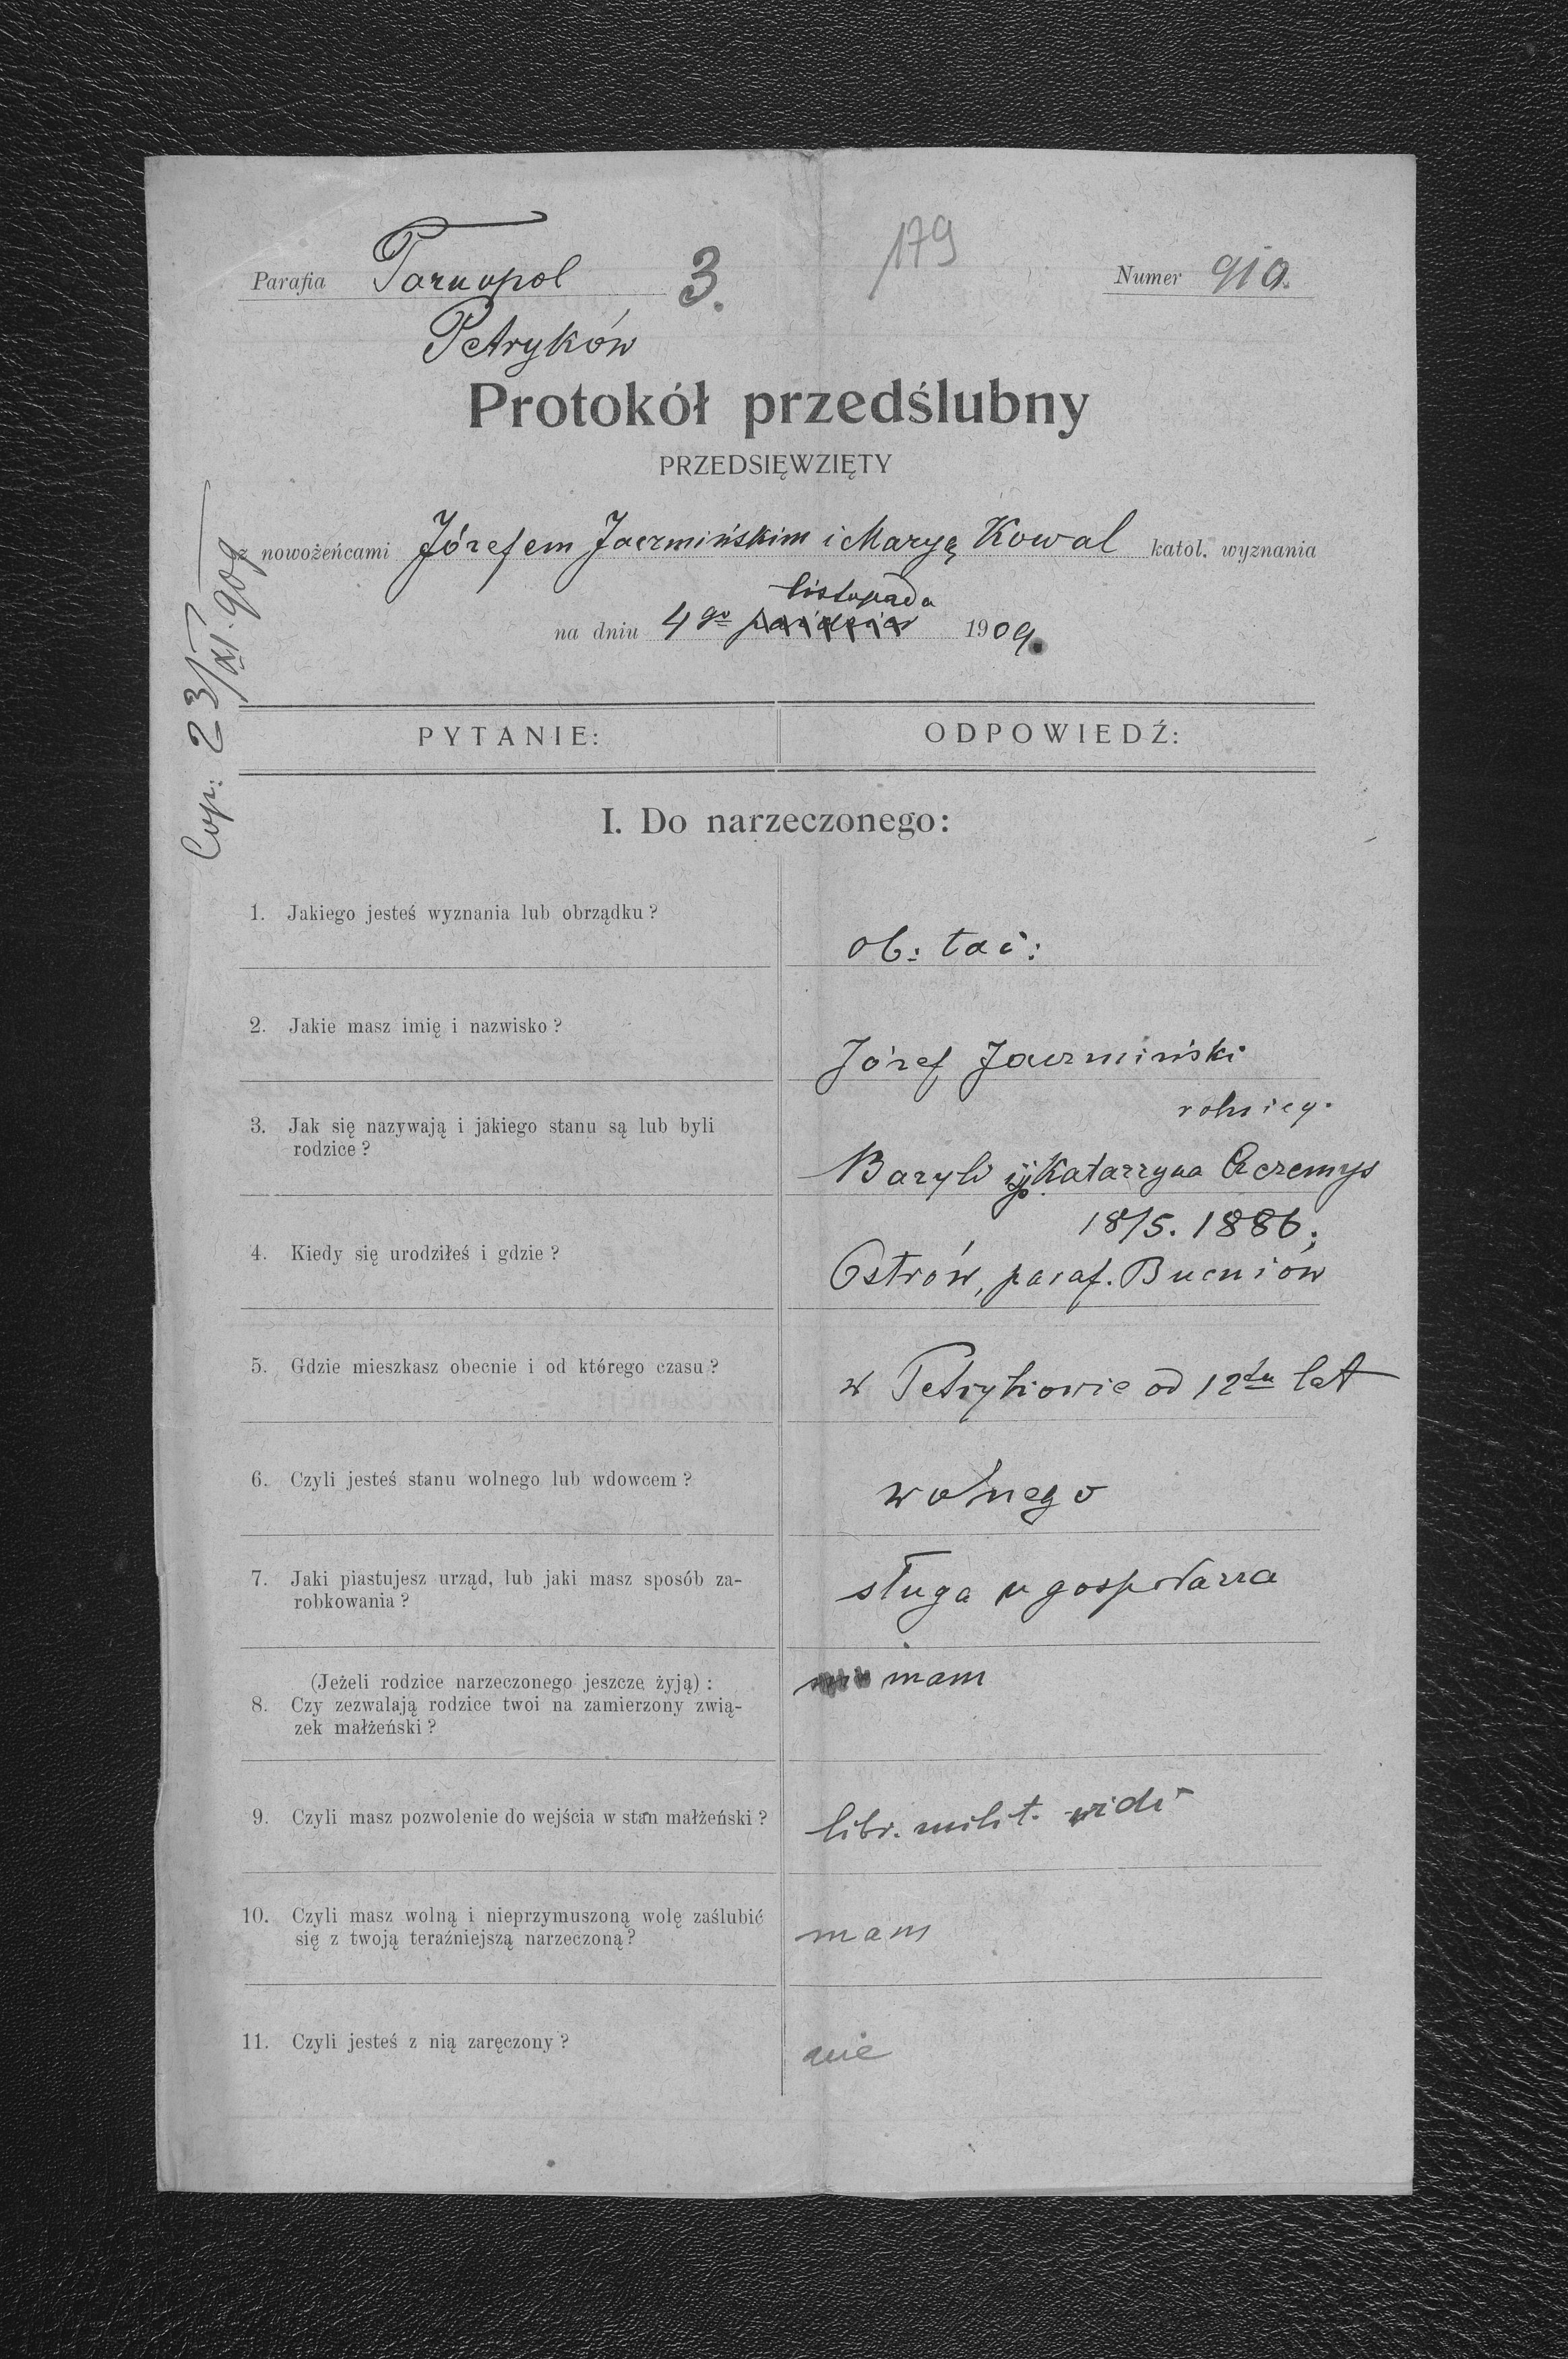 Parafia Tarnopol 3. 179 Numer 910.
Petryków
Protokół przedślubny
PRZEDSIĘWZIĘTY
z nowożeńcami Józefem Jaczmińskim i Maryę Kowal katol. wyznania
listopada
na dniu 4go 1909.
Cop: 23/XI. 909
PYTANIE: ODPOWIEDŹ:
I. Do narzeczonego:
1. Jakiego jesteś wyznania lub obrządku?
ob: łac:
2. Jakie masz imię i nazwisko?
Józef Jaczmiński
3. Jak się nazywają i jakiego stanu są lub byli
rodzice?
rolnicy.
Bazyli i Katarzyna
4. Kiedy się urodziłeś i gdzie?
18/5. 1886;
Ostrów, paraf. Bucniów
5. Gdzie mieszkasz obecnie i od którego czasu?
w Petrykowie od 12tu lat
6. Czyli jesteś stanu wolnego lub wdowcem?
wolnego
7. Jaki piastujesz urząd, lub jaki masz sposób za-
robkowania?
sługa u gospodarza
(Jeżeli rodzice narzeczonego jeszcze żyją):
8. Czy zezwalają rodzice twoi na zamierzony zwią-
zek małżeński?
mam
9. Czyli masz pozwolenie do wejścia w stan małżeński?
libr. milit. vidi
10. Czyli masz wolną i nieprzymuszoną wolę zaślubić
się z twoją teraźniejszą narzeczoną?
mam
11. Czyli jesteś z nią zaręczony?
nie